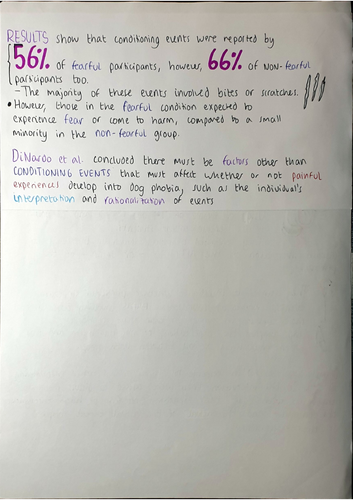 RESULTS show that conditioning events were reported by
56% of fearful participants, however, 66% of non-fearful
participants too.
- The majority of these events involved bites or scratches.
• However, those in the fearful condition expected to
experience fear or come to harm, compared to a small
minority in the non-fearful group.
DiNardo et al. concluded there must be factors other than
CONDITIONING EVENTS that must affect whether or not painful
experiences develop into dog phobia, such as the individual's
interpretation and rationalization of events